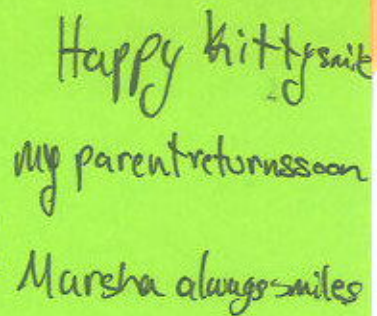 Happy Kittysmile
my parentreturnssoon
Marsha alwayssmiles